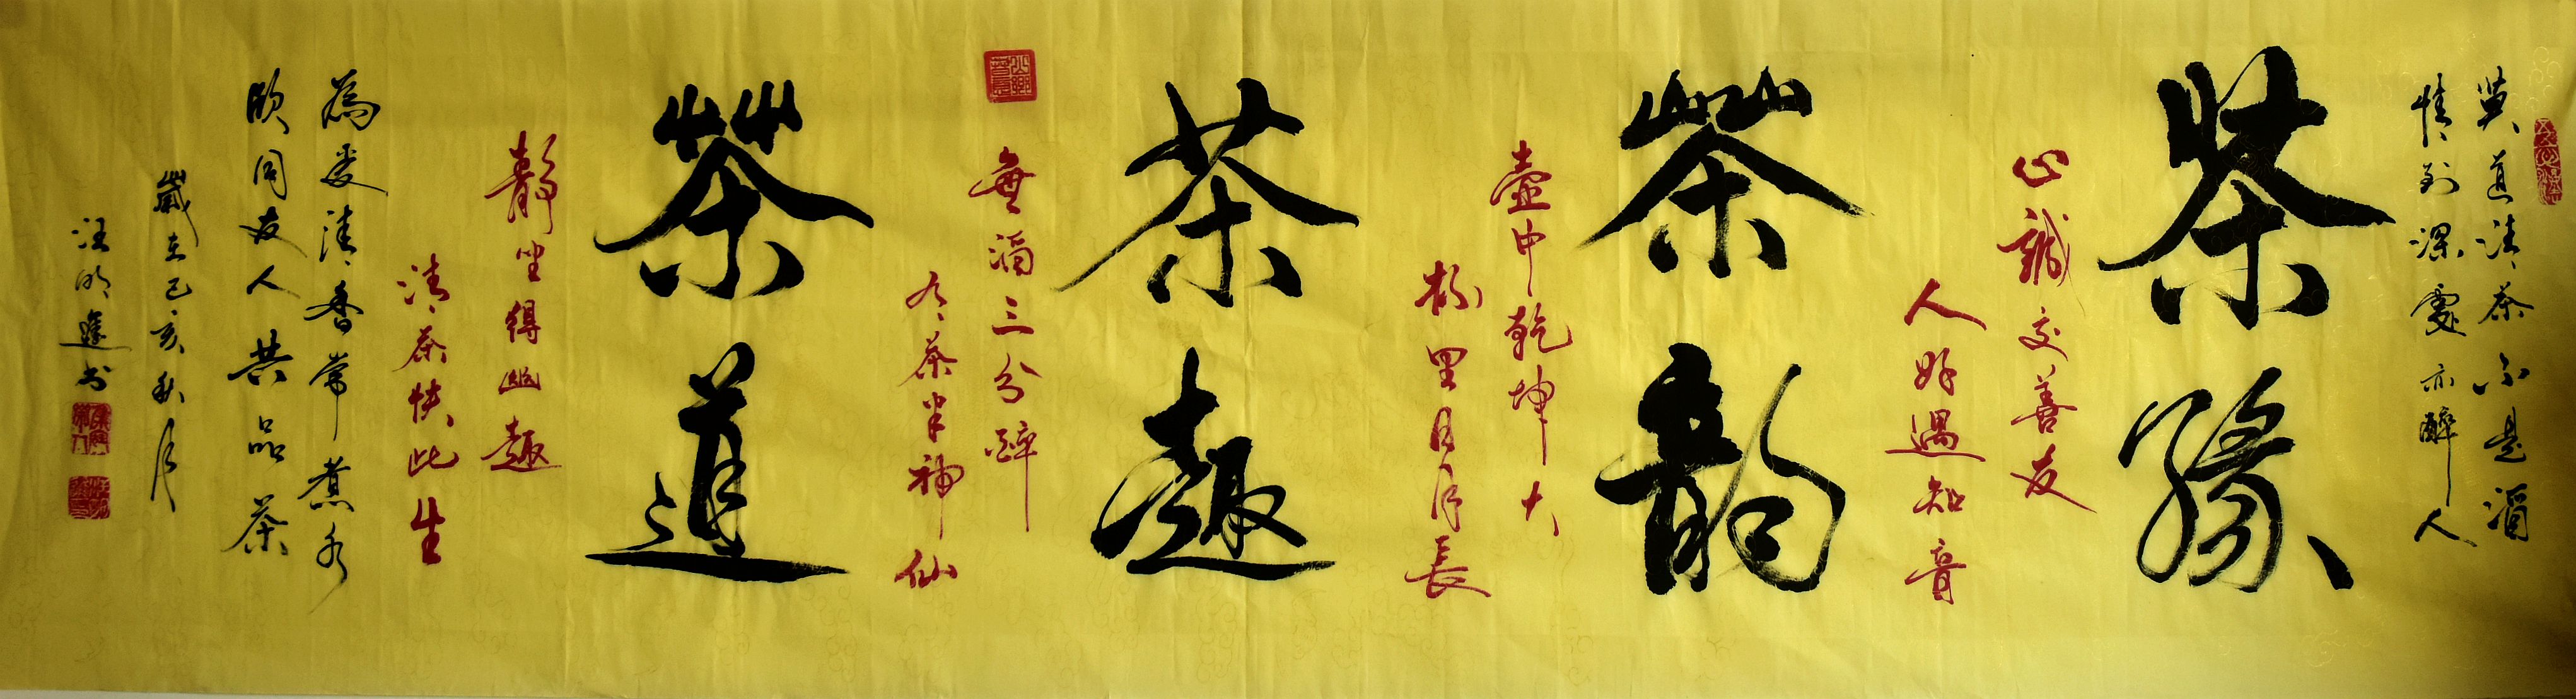 莫道清茶不是酒
情到深處亦醉人
茶緣
心誠交善友
人好遇知音
茶韵
壶中乾坤大
杯里日月長
茶趣
無酒三分醉
冬茶半神仙
茶道
静坐得幽趣
清茶快此生
為愛清香常煮水
欣同友人共品茶
歲在己亥秋月
汪明進书